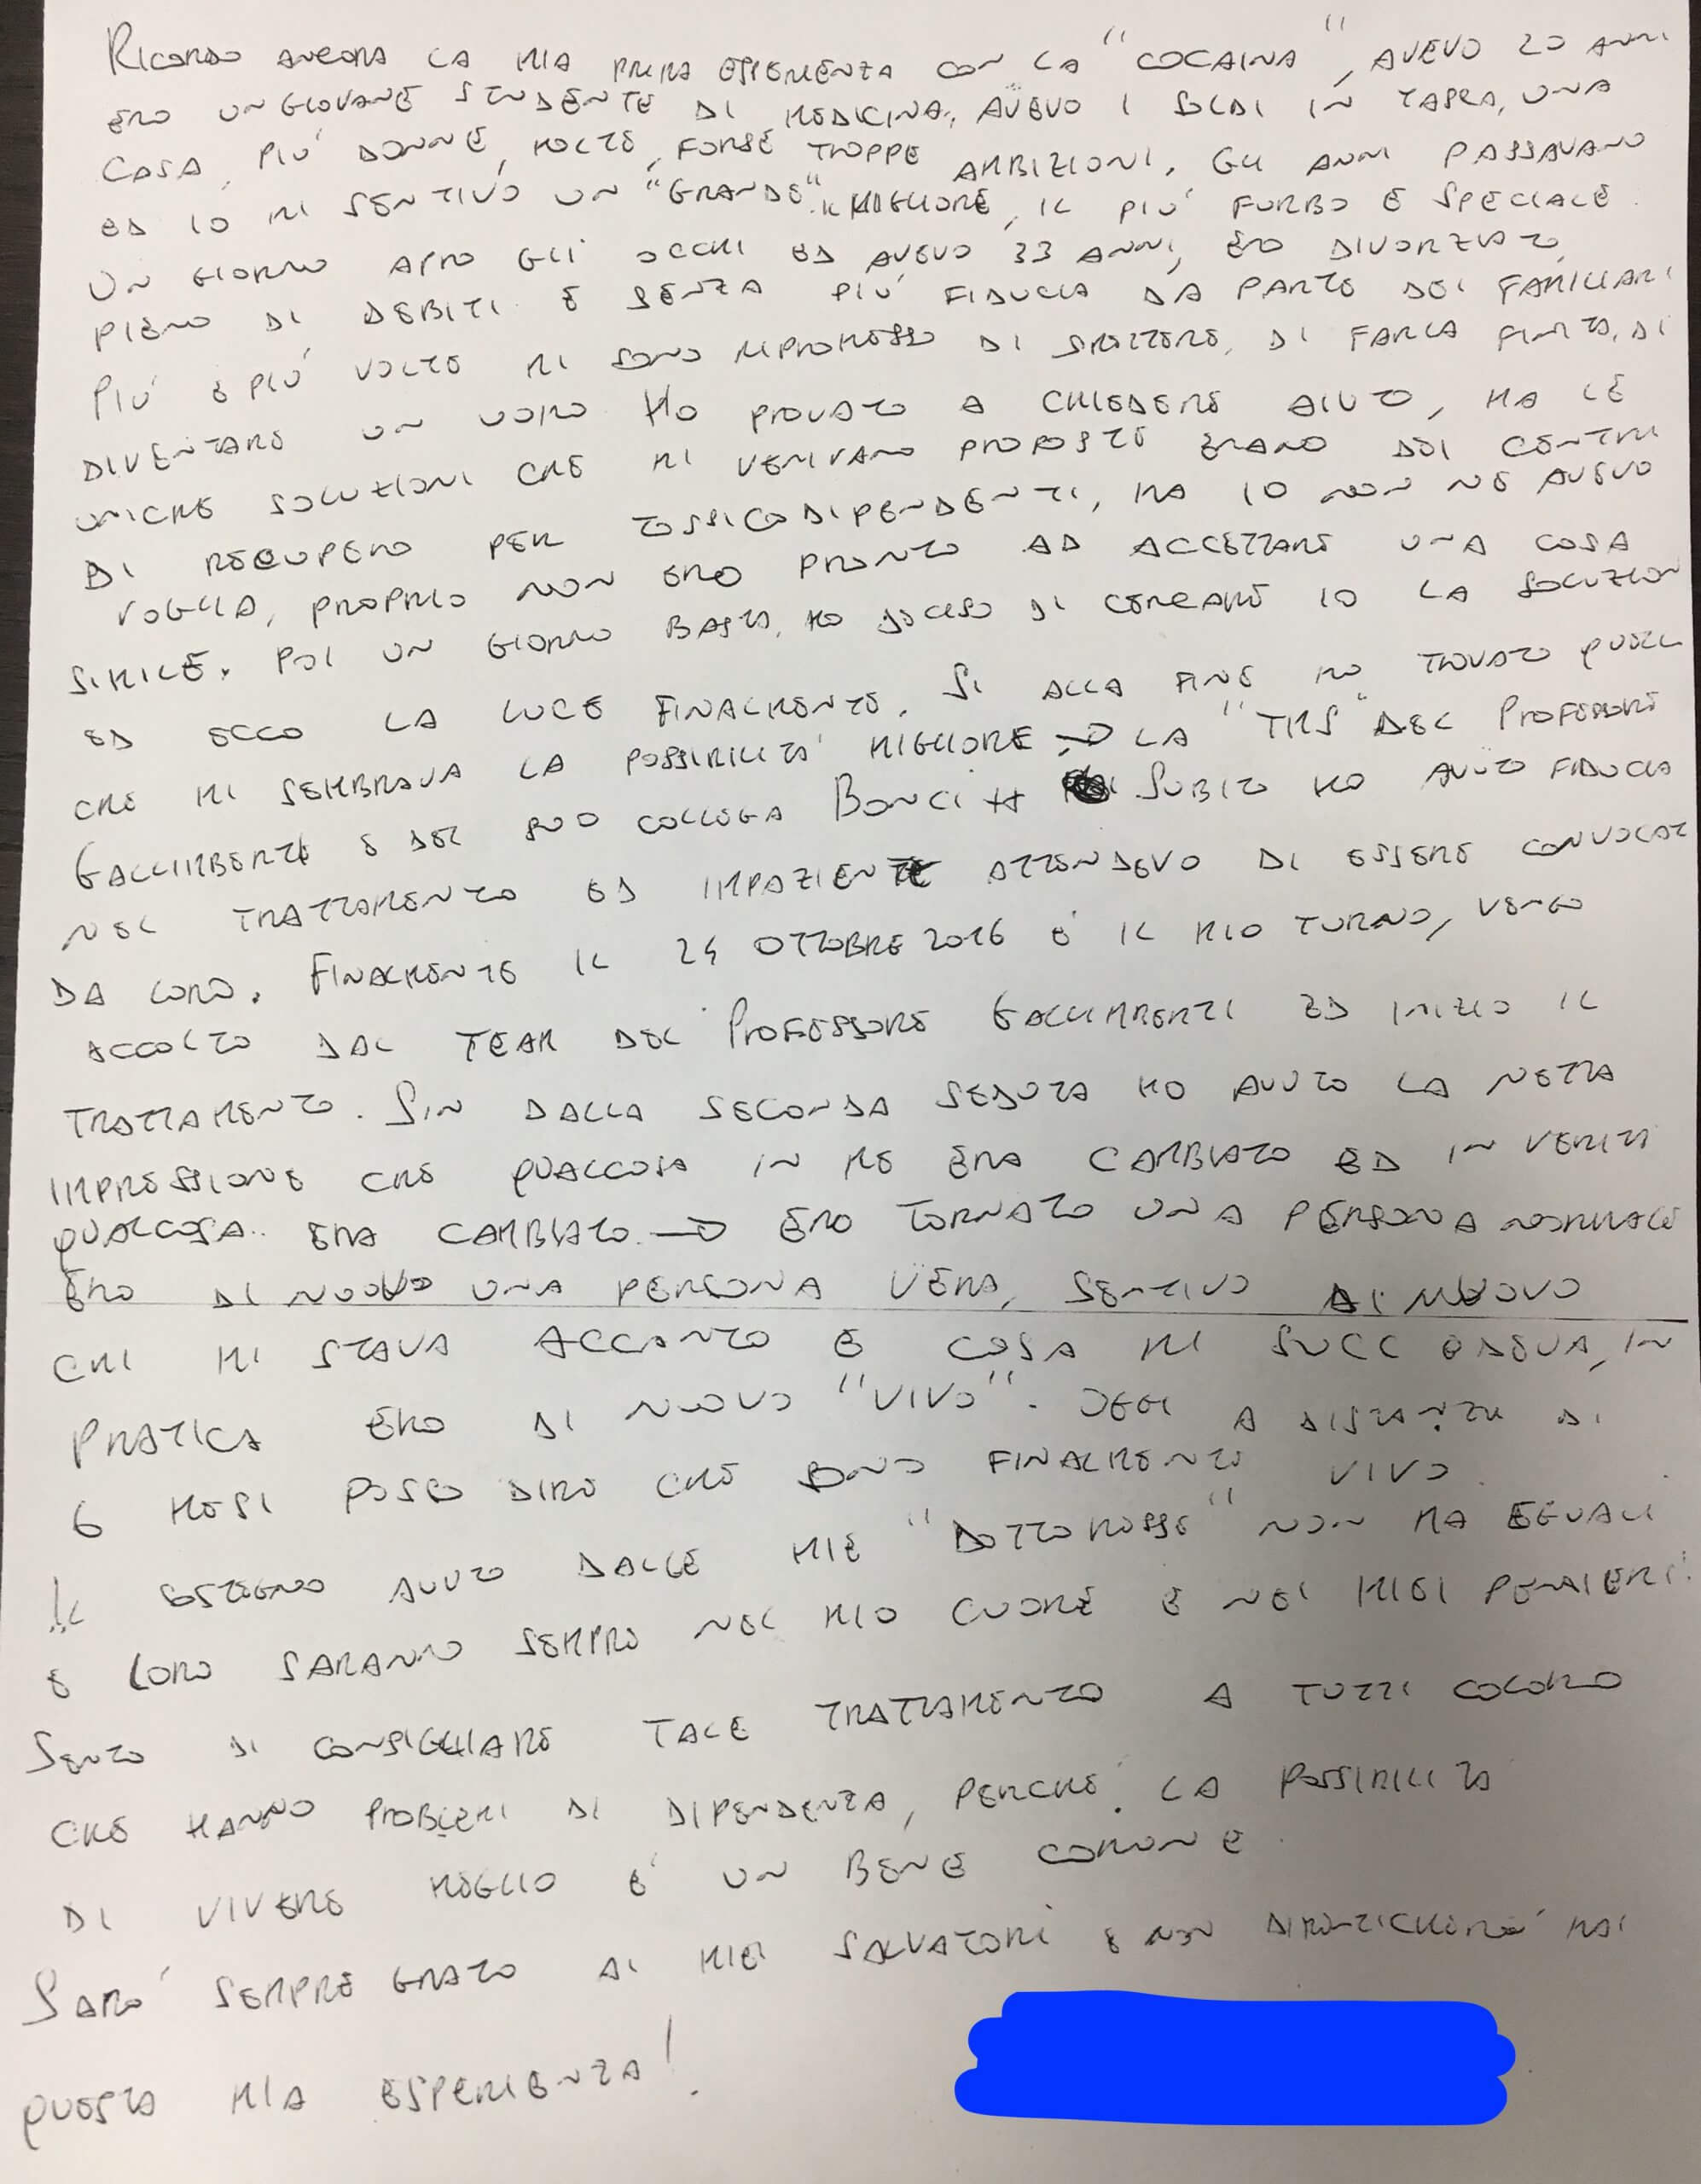 RICORDO ANCORA LA MIA PRIMA ESPERIENZA CON LA "COCAINA", AVEVO 20 ANNI
ERO UN GIOVANE STUDENTE DI MEDICINA, AVEVO I SOLDI IN TASCA, UNA
CASA, PIÙ DONNE, MOLTE, FORSE TROPPE AMBIZIONI. GLI ANNI PASSAVANO
ED IO MI SENTIVO UN "GRANDE". IL MIGLIORE, IL PIÙ FURBO E SPECIALE.
UN GIORNO APRO GLI OCCHI ED AVEVO 33 ANNI, ERO DIVORZIATO,
PIENO DI DEBITI E SENZA PIÙ FIDUCIA DA PARTE DEI FAMILIARI
PIÙ E PIÙ VOLTE MI SONO RIPROMESSO DI SMETTERE, DI FARLA FINITA, DI
DIVENTARE UN UOMO HO PROVATO A CHIEDERE AIUTO, MA LE
UNICHE SOLUZIONI CHE MI VENIVANO PROPOSTE ERANO DEI CENTRI
DI RECUPERO PER TOSSICODIPENDENTI, MA IO NON NE AVEVO
VOGLIA, PROPRIO NON ERO PRONTO AD ACCETTARE UNA COSA
SIMILE. POI UN GIORNO BASTA, HO DECISO DI CERCARE IO LA SOLUZION
ED ECCO LA LUCE FINALMENTE. SI ALLA FINE HO TROVATO QUELL
CHE MI SEMBRAVA LA POSSIBILITÀ MIGLIORE → LA "TMS" DEL PROFESSORE
GALLIMBERTI E DEL SUO COLLEGA BONCI SUBITO HO AVUTO FIDUCIA
NEL TRATTAMENTO ED IMPAZIENTE ATTENDEVO DI ESSERE CONVOCAT
DA LORO. FINALMENTE IL 24 OTTOBRE 2016 È IL MIO TURNO, VENGO
ACCOLTO DAL TEAM DEL PROFESSORE GALLIMBERTI ED INIZIO IL
TRATTAMENTO. SIN DALLA SECONDA SEDUTA HO AVUTO LA NETTA
IMPRESSIONE CHE QUALCOSA IN ME ERA CAMBIATO ED IN VERITÀ
QUALCOSA.. ERA CAMBIATO → ERO TORNATO UNA PERSONA NORMALE
ERO DI NUOVO UNA PERSONA VERA, SENTIVO DI NUOVO
CHI MI STAVA ACCANTO E COSA MI SUCCEDEVA, IN
PRATICA ERO DI NUOVO "VIVO". OGGI A DISTANZA DI
6 MESI POSSO DIRE CHE SONO FINALMENTE VIVO.
IL SOSTEGNO AVUTO DALLE MIE "DOTTORESSE" NON HA EGUALI
E LORO SARANNO SEMPRE NEL MIO CUORE E NEI MIEI PENSIERI.
SENTO DI CONSIGLIARE TALE TRATTAMENTO A TUTTI COLORO
CHE HANNO PROBLEMI DI DIPENDENZA, PERCHÉ LA POSSIBILITÀ
DI VIVERE MEGLIO È UN BENE COMUNE.
SARÒ SEMPRE GRATO AI MIEI SALVATORI E NON DIMENTICHERÒ MAI
QUESTA MIA ESPERIENZA!